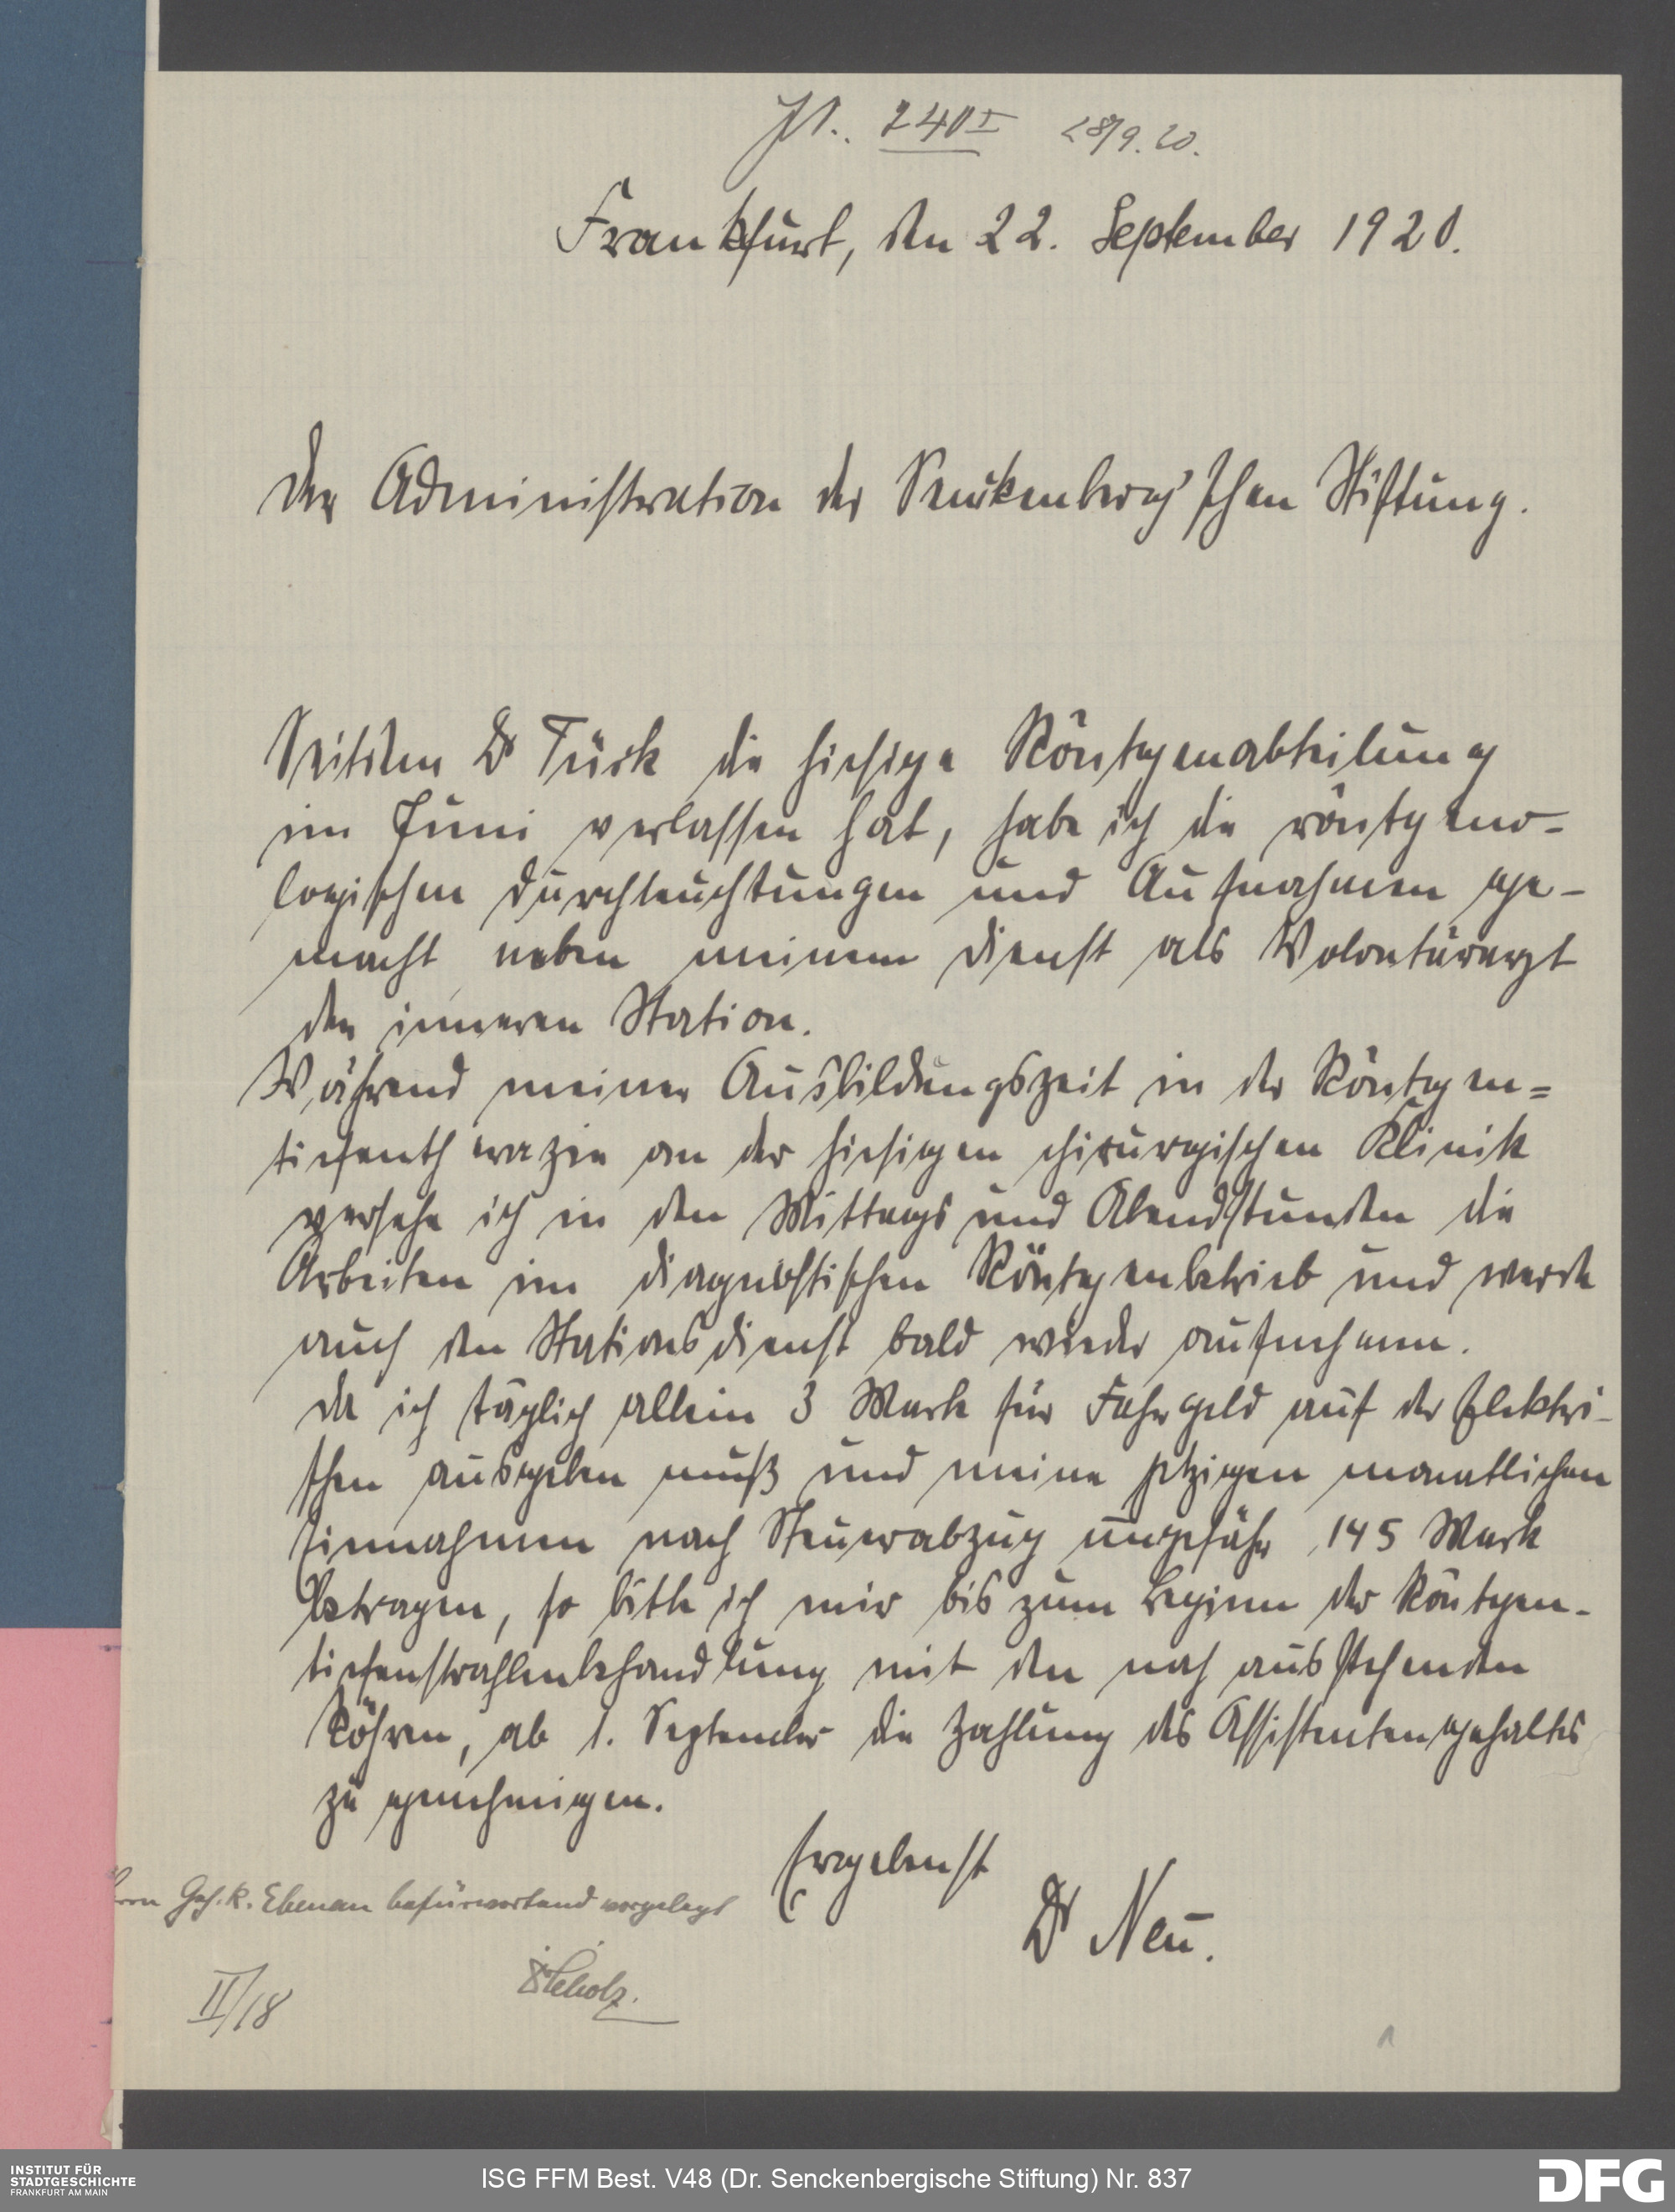 240 I 28/9.20.
Frankfurt, den 22. September 1920.
Der Administration der Senckenberg'schen Stiftung.
Seitdem Dr Türk die hiesige Röntgenabteilung
im Juni verlassen hat, habe ich die röntgeno-
logischen Durchleuchtungen und Aufnahmen ge-
macht neben meinem Dienst als Volontärarzt
der inneren Station.
Während meiner Ausbildungszeit in der Röntgen=
tiefentherapie an der hiesigen chirurgischen Klinik
versehe ich in den Mittags und Abendstunden die
Arbeiten im diagnostischen Röntgenbetrieb und werde
auch den Stationsdienst bald wieder aufnehmen.
Da ich täglich allein 3 Mark für Fahrgeld auf der Elektri-
schen ausgeben muß und meine jetzigen monatlichen
Einnahmen nach Steuerabzug ungefähr 145 Mark
betragen, so bitte ich mir bis zum Beginn der Röntgen-
tiefenstrahlenbehandlung mit den noch ausstehenden
Röhren, ab 1. September die Zahlung des Assistentengehaltes
zu genehmigen.
Ergebenst
Dr Neu.
Herrn Geh. R. Ebenau befürwortend vorgelegt
Scholz.
II/18
1
INSTITUT FÜR
STADTGESCHICHTE
FRANKFURT AM MAIN
ISG FFM Best. V48 (Dr. Senckenbergische Stiftung) Nr. 837
DFG